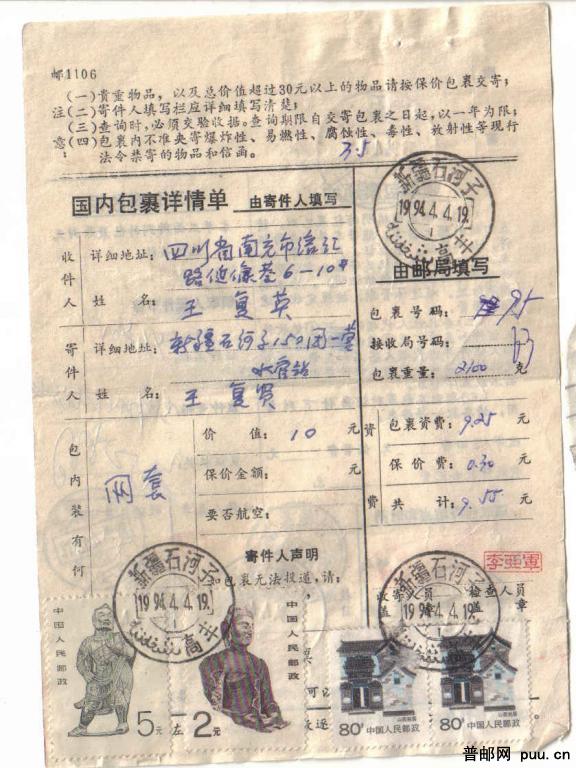 邮1106
(一)贵重物品，以及总价值超过30元以上的物品请按保价包裹交寄；
注(二)寄件人填写栏应详细填写清楚；
(三)查询时，必须交验收据。查询期限自交寄包裹之日起，以一年为限；
意(四)包裹内不准夹寄爆炸性、易燃性、腐蚀性、毒性、放射性等现行
：法令禁寄的物品和信函。
3.5
新疆石河子
1994.4.4.19.
国内包裹详情单 由寄件人填写
由邮局填写
收件人
详细地址：四川省南充市涪江
路 6-10#
姓 名：王复英
寄件人
详细地址：新疆石河子152团一营
水管站
姓 名：王复贤
包裹号码：95
接收局号码：63
包裹重量：2100 克
包内装有何
两套
价 值：10 元
保价金额： 元
要否航空：
资费
包裹资费：9.25 元
保 价 费：0.30 元
共 计：9.55 元
寄件人声明
如包裹无法投递，请：
李亚军
收寄人员盖章
检查人员盖章
新疆石河子
1994.4.4.19.
新疆石河子
1994.4.4.19.
中国人民邮政
5元
左
中国人民邮政
2元
可以
80分 中国人民邮政
山西民居
80分 中国人民邮政
山西民居
普邮网 puu.cn